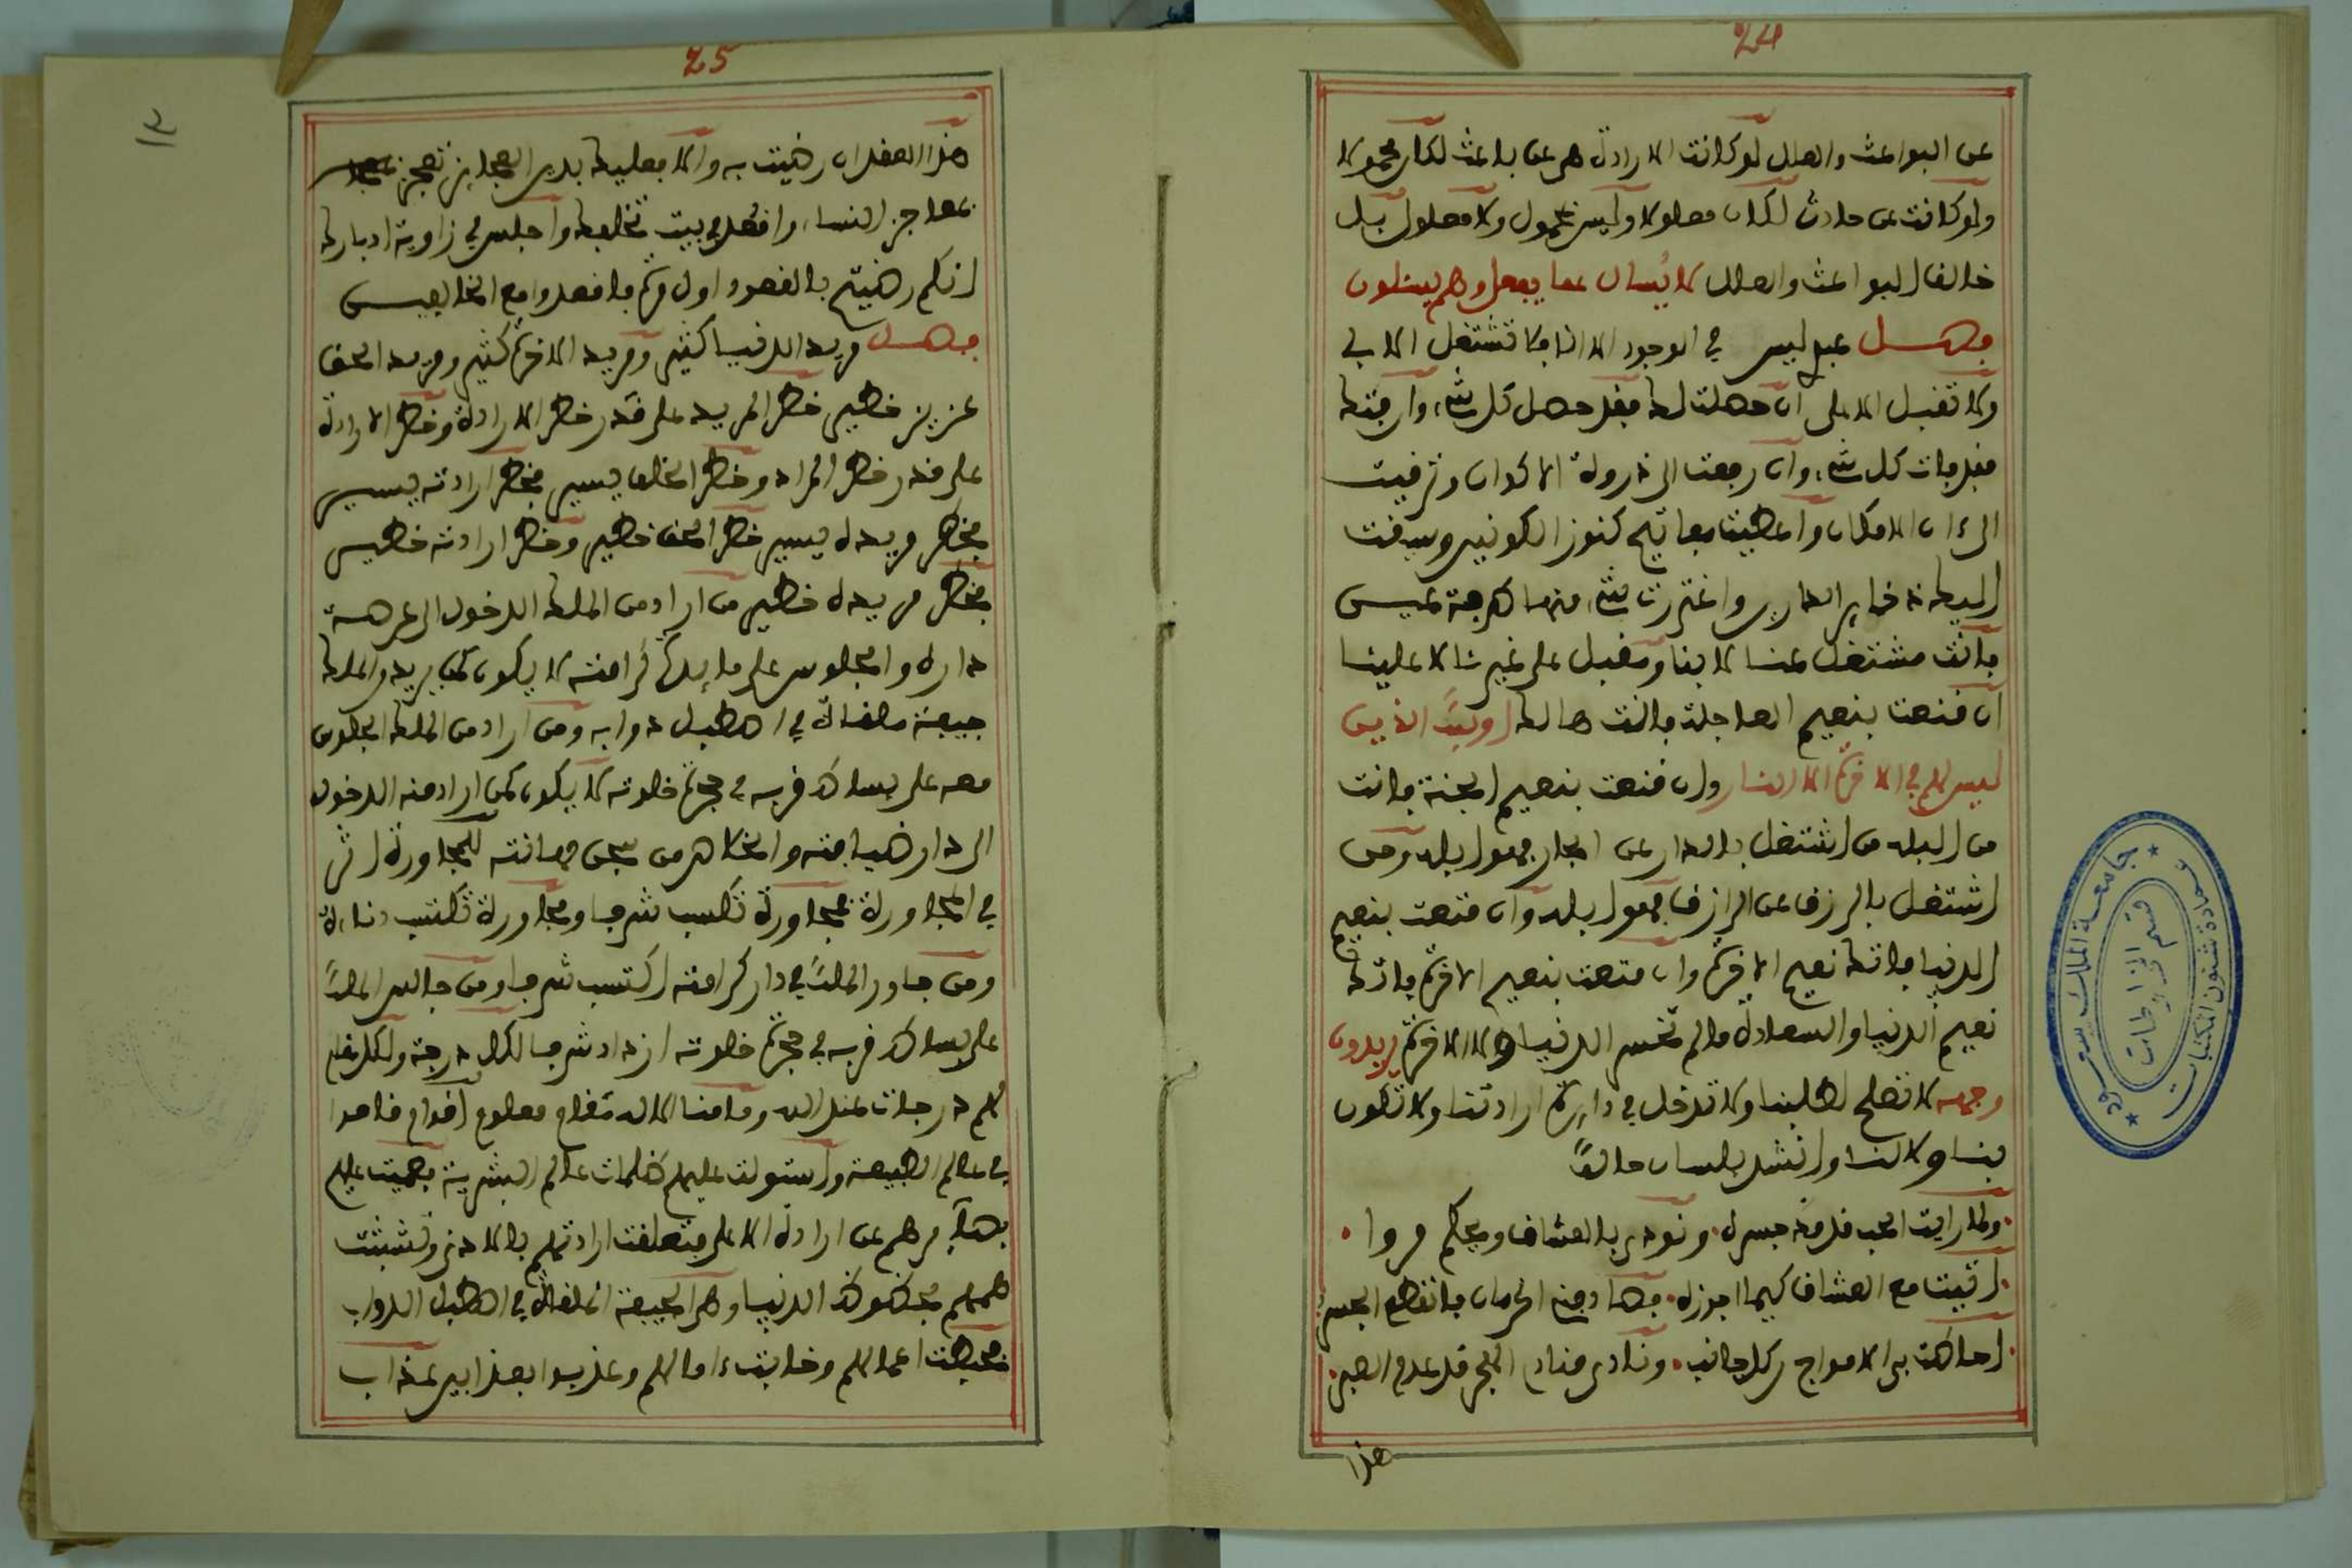 24
عن البواعث والعلل لو كانت الارادة هى عن باعث لكان محمولا
ولو كانت عن حادث لكان معلولا وليس بمحمول ولا معلول بل
خالق البواعث والعلل لا يُسأل عما يفعل وهم يسئلون
فصل عبدى ليس في الوجود الا انا فلا تشتغل الا بى
ولا تقبل الا على ان حصلت لك فقد حصل كل شىء وان فتك
فقد فات كل شىء وان رفعت الى ذروة الاكوان وترقيت
الى الامكان وأعطيت مفاتيح كنوز الكونين وسيقت
اليك ذخاير الدارين واغتررت بشىء منها طرفة عين
فانت مشتغل عنا لا بنا ومقبل على غيرنا لا علينا
ان قنعت بنعيم العاجلة فانت هالك اوليَك الذين
ليس لهم في الاخرة الا النار وان قنعت بنعيم الجنة فانت
من البله من اشتغل بالدار عن الجار فهو ابله ومن
اشتغل بالرزق عن الرازق فهو ابله وان قنعت بنعيم
الدنيا فاتك نعيم الاخرة وان قنعت بنعيم الاخرة فاتك
نعيم الدنيا والسعادة ما لم تخسر الدنيا ولا الاخرة يريدون
وجهه لا تصلح لطلبنا ولا تدخل في دايرة ارادتنا ولا تكون
بنا ولا لنا وانشد بلسان حالك
ولما رايت الحب قد مد جسره ونودى بالعشاق ويحكم مروا
اتيت مع العشاق كيما اجوزه فصادفنى الحرمان فانقطع الجسر
احاطت بى الامواج من كل جانب ونادى مناد الهجر قد عدم الصبر
هذا
25
هذا العقد ان رضيت به والا فعليك بدين العجايز تعجز
عجايز النساء واقعد في بيت تخلفك واجلس في زاوية ادبارك
انكم رضيتم بالقعود اول مرة فاقعدوا مع الخالفين
فصل مريد الدنيا كثير ومريد الاخرة كثير ومريد الحق
عزيز خطير خطر المريد على قدر خطر الارادة وخطر الارادة
على قدر خطر المراد وخطر الخلق يسير فخطر ارادته يسير
فخطر مريده يسير خطر الحق خطير وخطر ارادته خطير
فخطر مريده خطير من اراد من الملك الدخول الى عرصة
داره والجلوس على مايدة كرامته لا يكون كمن يريد من الملك
جيفة ملقاة في اصطبل دوابه ومن اراد من الملك الجلوس
معه على بساط قربه في حجرة خلوته لا يكون كمن اراد منه الدخول
الى دار ضيافته والخلاص من سجن مهانته للمجاورة اثر
في المجاورة فمجاورة تكسب شرفا ومجاورة تكتسب دناءة
ومن جاور الملكَ في دار كرامته اكتسب شرفا ومن جالس الملكَ
على بساط قربه في حجرة خلوته ازداد شرفا لكل درجة ولكل مقام
هم درجات عند الله وما منا الا له مقام معلوم اقوام قاموا
في عالم الطبيعة واستولت عليهم ظلمات عالم البشرية فعميت عليهم
بصايرهم عن ارادة الاعلى فتعلقت ارادتهم بالادنى وتشبثت
هممهم بحظوظ الدنيا وهى الجيفة الملقاة في اصطبل الدواب
فحبطت اعمالهم وخابت ءامالهم وعذبوا بعذابين عذاب
جامعة الملك سعود
عمادة شئون المكتبات
قسم المخطوطات